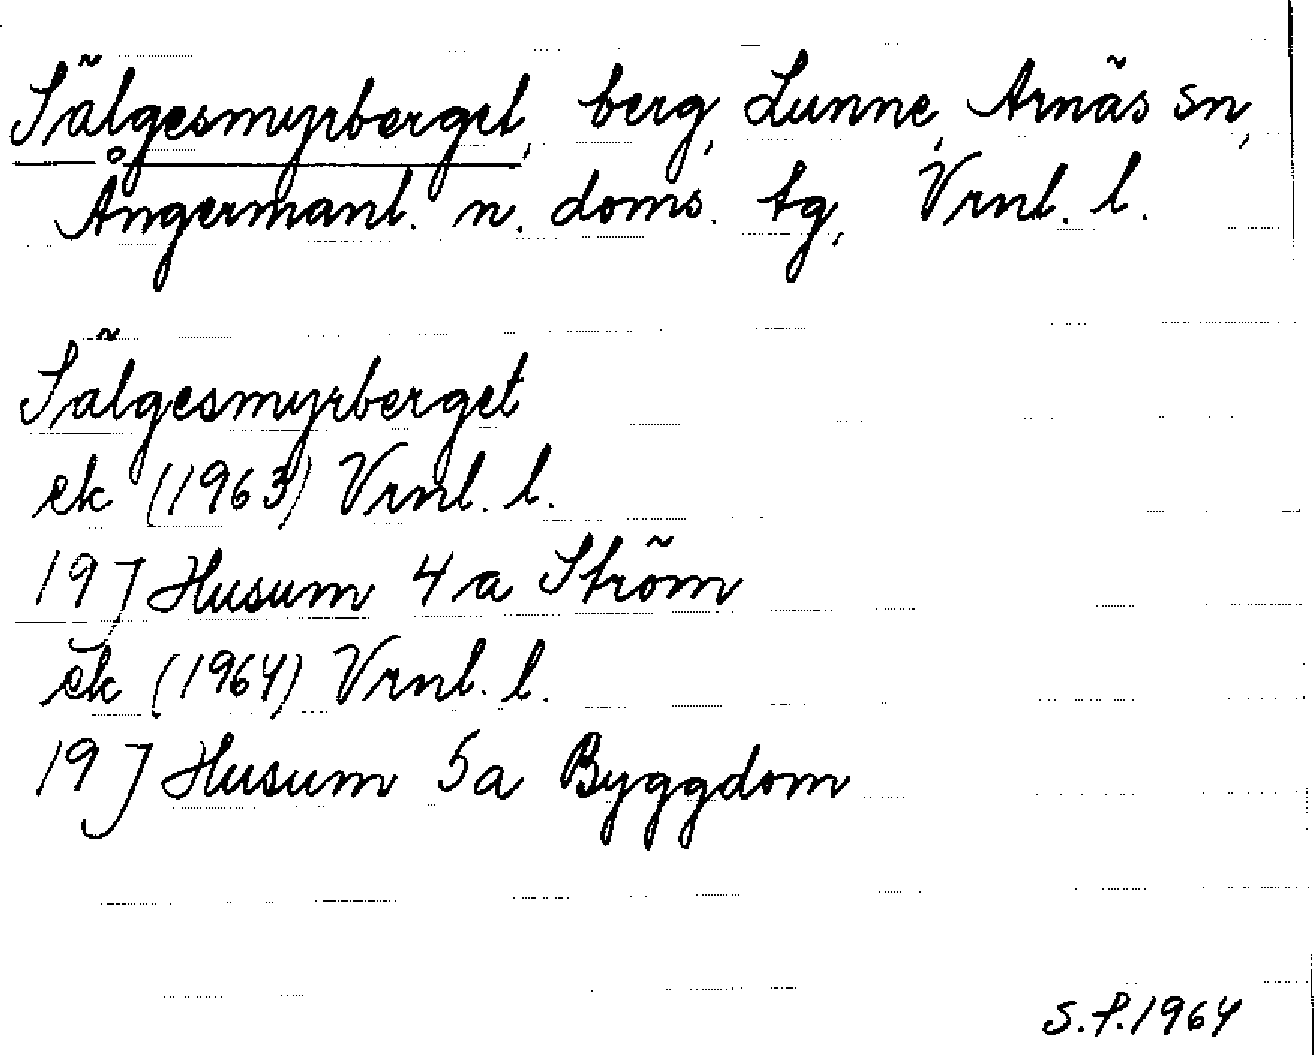 Sälgesmyrberget, berg, Lunne, Arnäs sn,
Ångermanl. n. doms. tg, Vrnl. l.
Sälgesmyrberget
ek (1963) Vrnl. l.
19 J Husum 4 a Ström
ek (1964) Vrnl. l.
19 J Husum 5a Byggdom
S.P. 1964